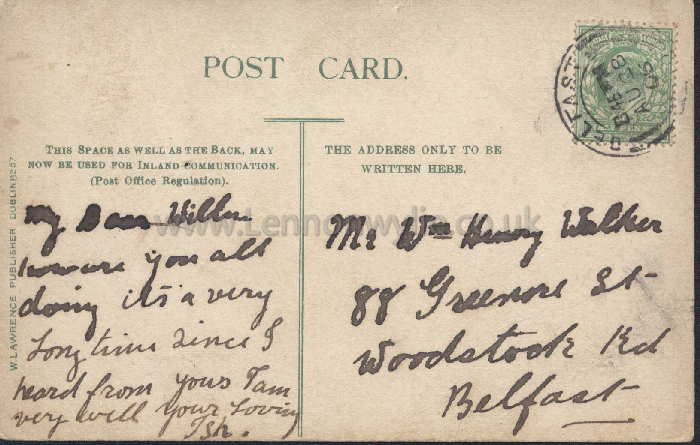 POST CARD.
THIS SPACE AS WELL AS THE BACK, MAY
NOW BE USED FOR INLAND COMMUNICATION.
(Post Office Regulation).
THE ADDRESS ONLY TO BE
WRITTEN HERE.
W. LAWRENCE PUBLISHER DUBLIN
BELFAST
My Dear Willie
how are you all
doing its a very
Long time Since I
heard from yous I am
very well Your Loving
Mr Wm Henry Walker
88 Greenore St
Woodstock Rd
Belfast
www.Lennonwylie.co.uk